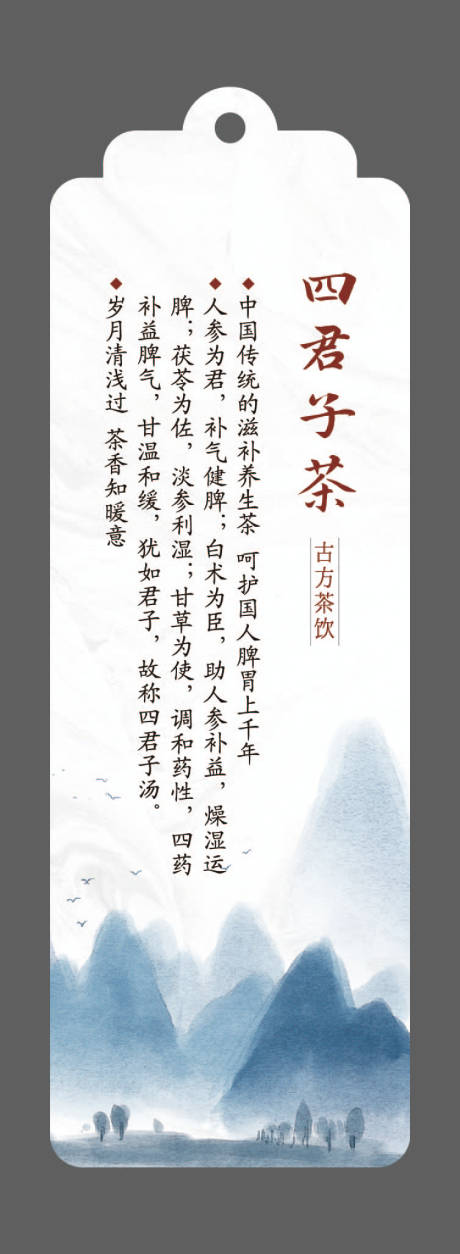 四君子茶
古方茶饮
中国传统的滋补养生茶 呵护国人脾胃上千年
人参为君，补气健脾；白术为臣，助人参补益，燥湿运
脾；茯苓为佐，淡参利湿；甘草为使，调和药性，四药
补益脾气，甘温和缓，犹如君子，故称四君子汤。
岁月清浅过 茶香知暖意